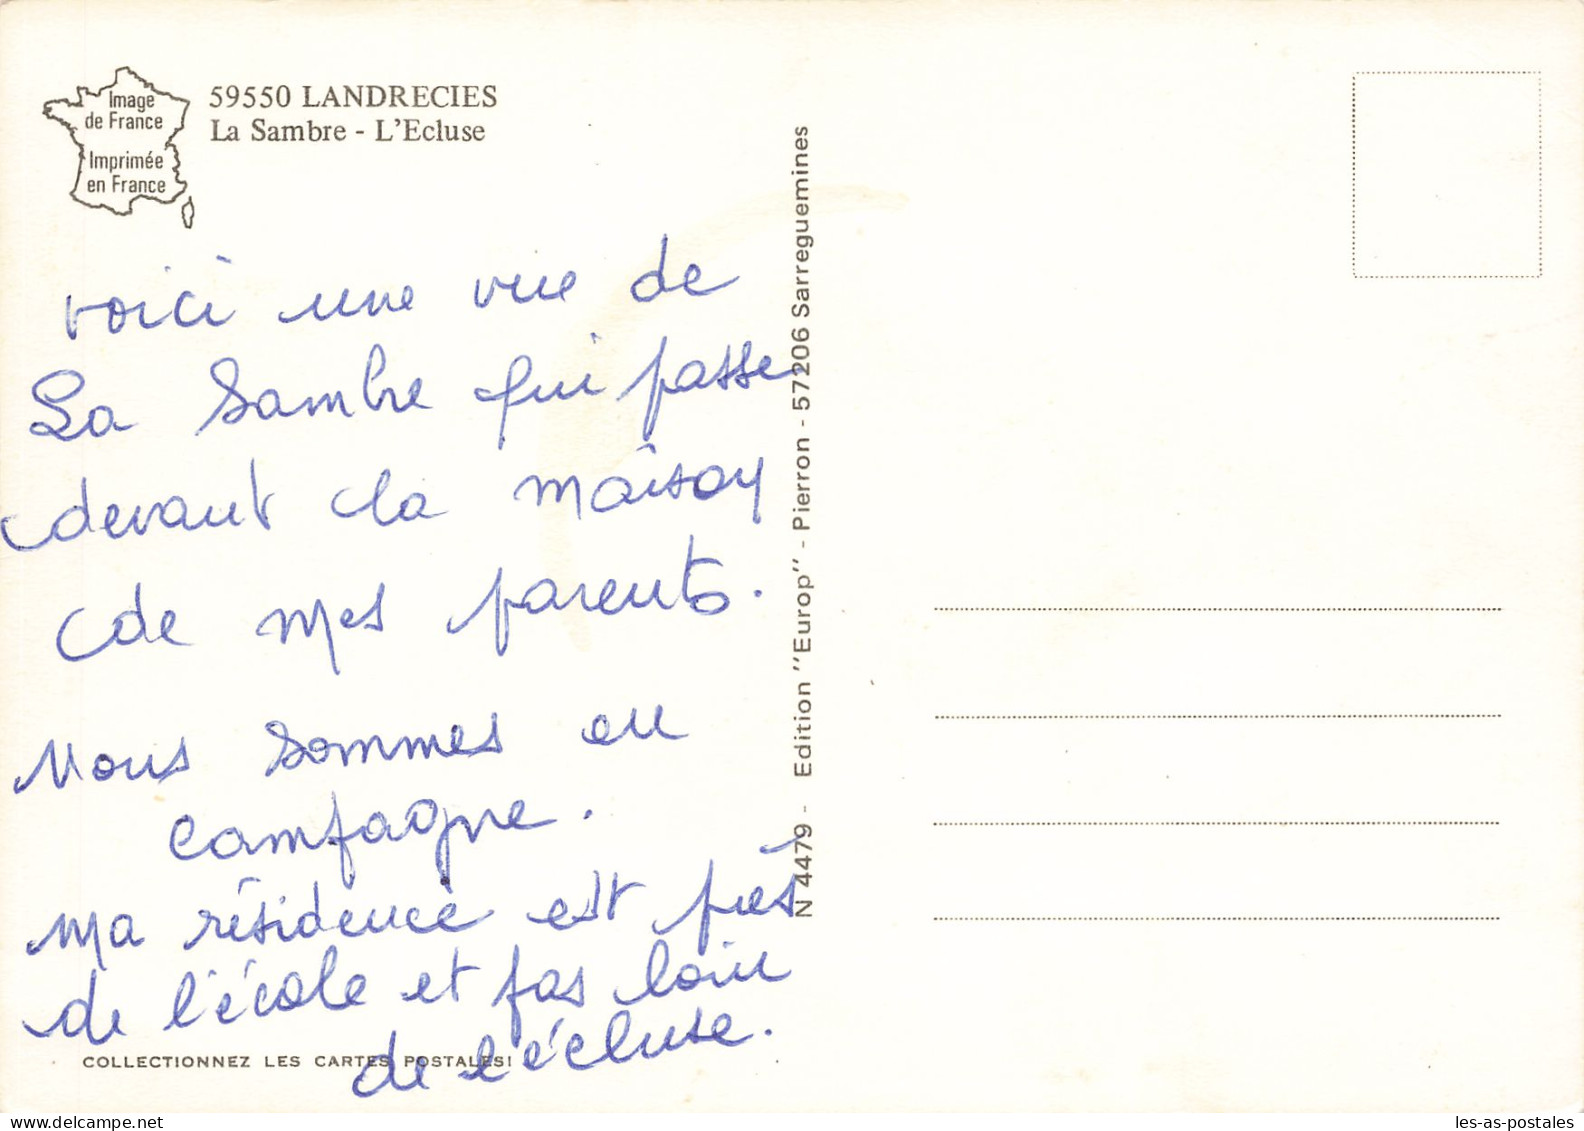 Image
de France
Imprimée
en France
59550 LANDRECIES
La Sambre - L'Ecluse
voici une vue de
La Sambre qui passe
devant la maison
de mes parents.
Nous sommes en
campagne.
Ma résidence est près
de l'école et pas loin
de l'écluse.
COLLECTIONNEZ LES CARTES POSTALES!
N 4479 - Edition "Europ" - Pierron - 57206 Sarreguemines
les-as-postales